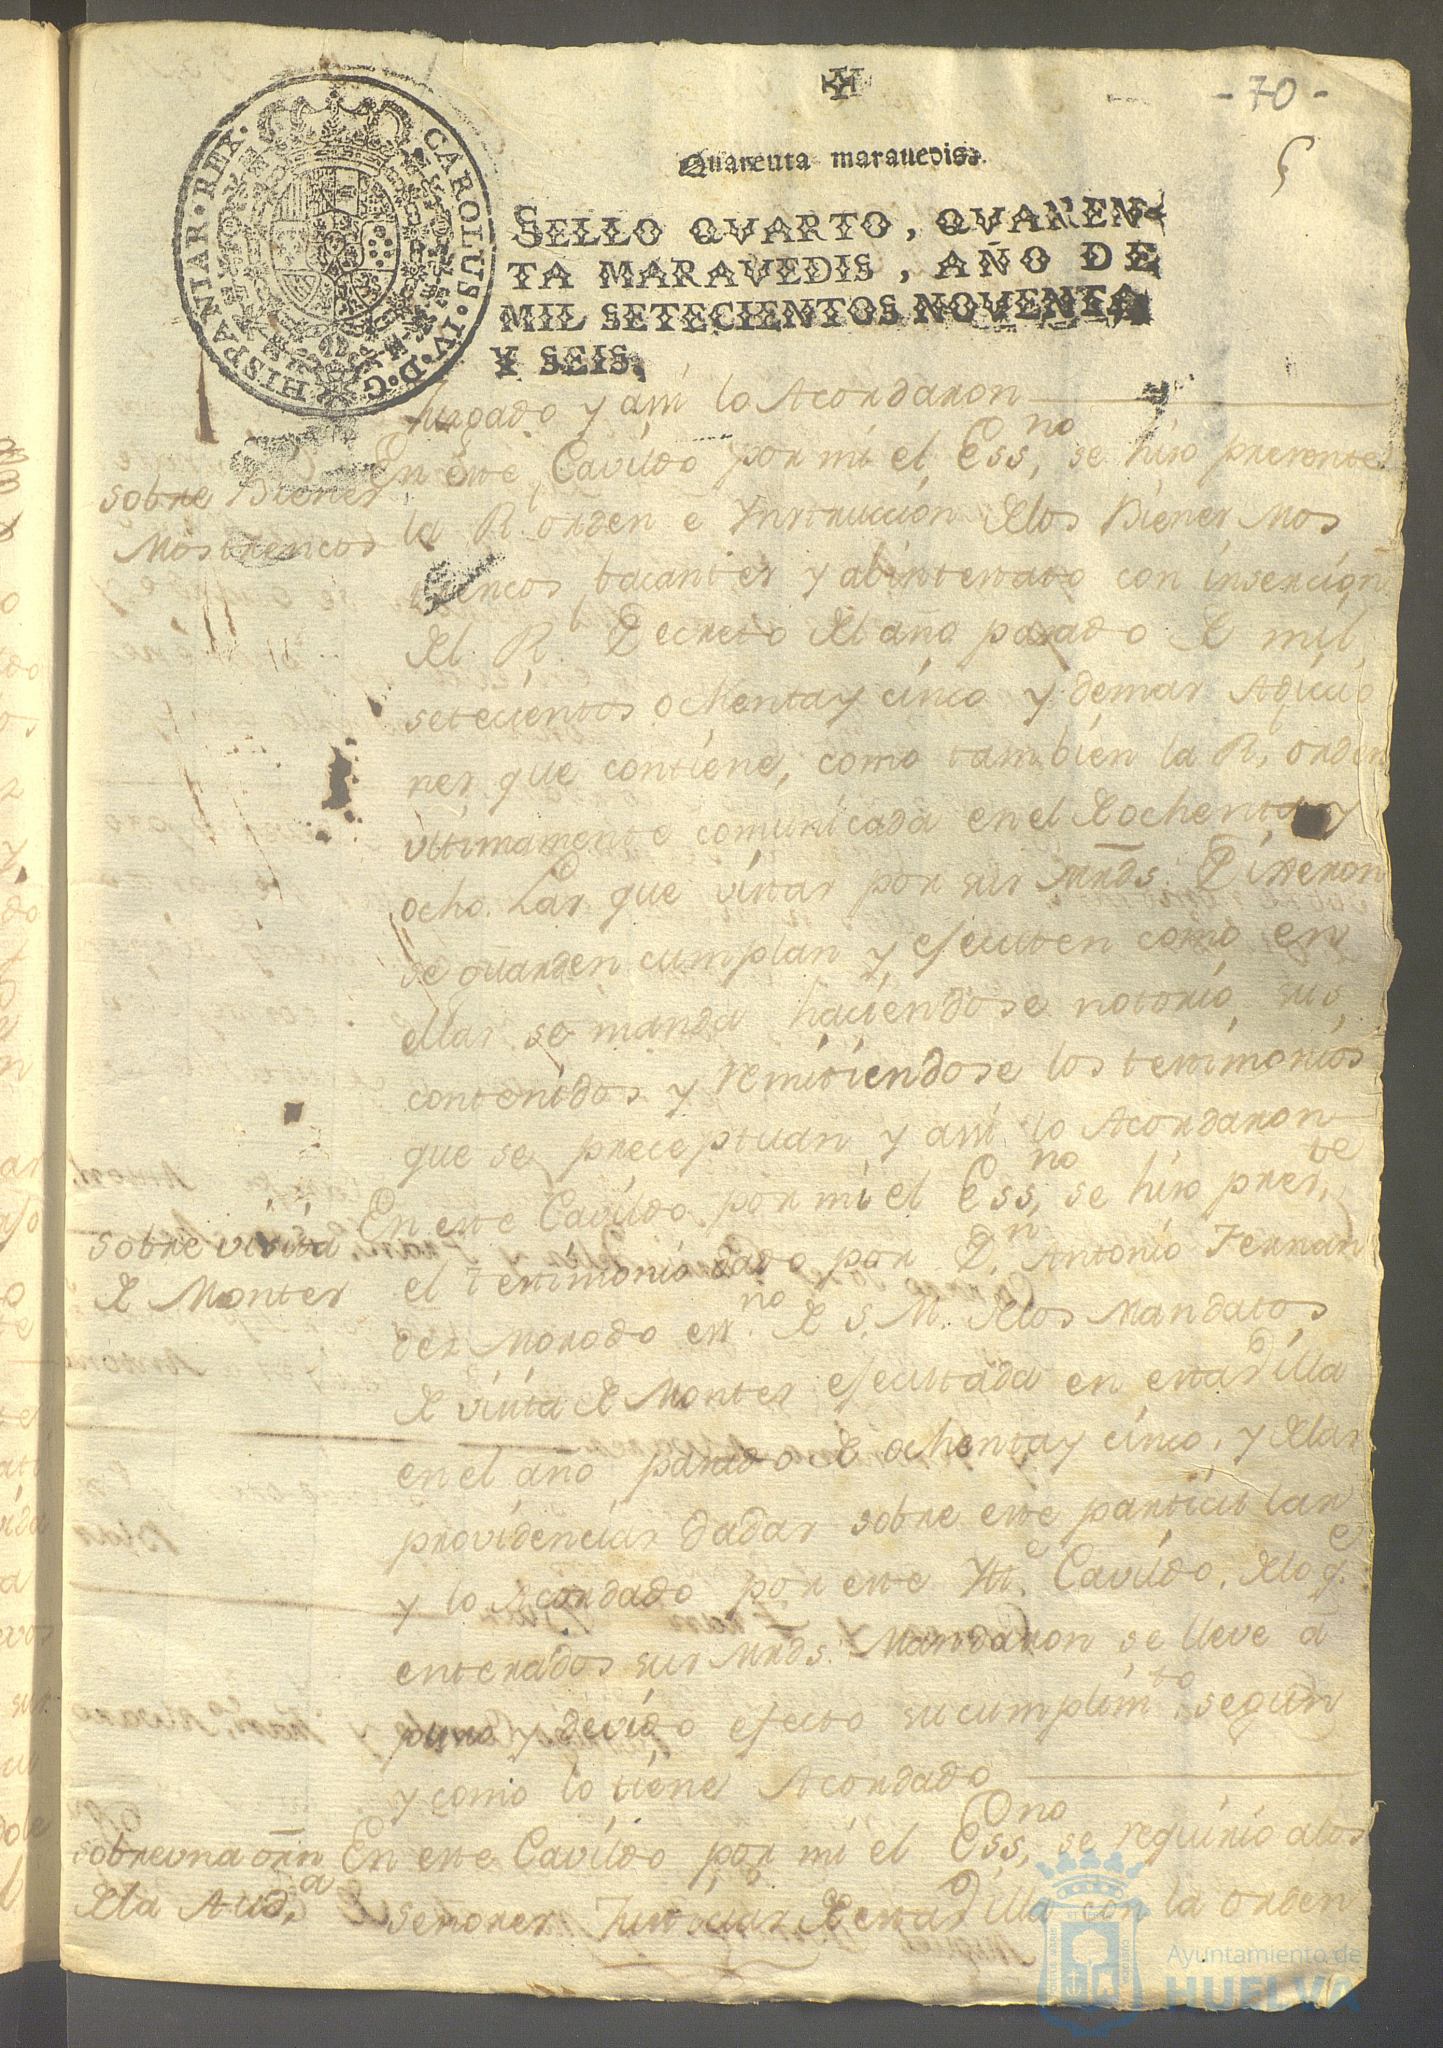 - 70 -
Quarenta maravedis.
SELLO QVARTO, QVAREN-
TA MARAVEDIS, AÑO DE
MIL SETECIENTOS NOVENTA
Y SEIS.
CAROLUS · IV · D · G · HISPANIAR · REX ·
Juzgado y asi lo Acordaron
sobre Bienes
Mostrencos
En este Cavildo por mi el Essno, se hizo presente
la Rl orden e Ynstruccion Delos Bienes Mos
trencos, bacantes y abintestato con insercion
Del Rl Decreto Del año pasado De mil
setecientos ochenta y cinco y demas Adicio
nes que contiene, como tambien la Rl orden
ultimamente comunicada en el De ochenta y
ocho. Las que vistas por sus Mrds. Dixeron
se guarden cumplan y ejecuten como en
ellas se manda haciendose notorio sus
contenidos y remitiendose los testimonios
que se preceptuan y asi lo Acordaron
sobre visita
De Montes
En este Cavildo por mi el Essno, se hizo preste
el testimonio dado por Dn. Antonio Fernan
dez Morodo essno. De S. M. Delos Mandatos
De visita De Montes ejecutada en esta Villa
en el año pasado De ochenta y cinco, y Delas
providencias dadas sobre este particular
y lo Acordado por este Ylle. Cavildo, Delo qe.
enterados sus Mrds. Mandaron se lleve a
puro y devido efecto su cumplimto segun
y como lo tiene Acordado
sobre una orn
Dela Auda
En este Cavildo por mi el Essno, se requirio a los
señores Justicias De esta Villa con la orden
Ayuntamiento de
HUELVA